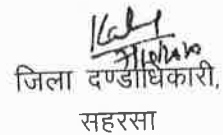 जिला दण्डाधिकारी,
सहरसा